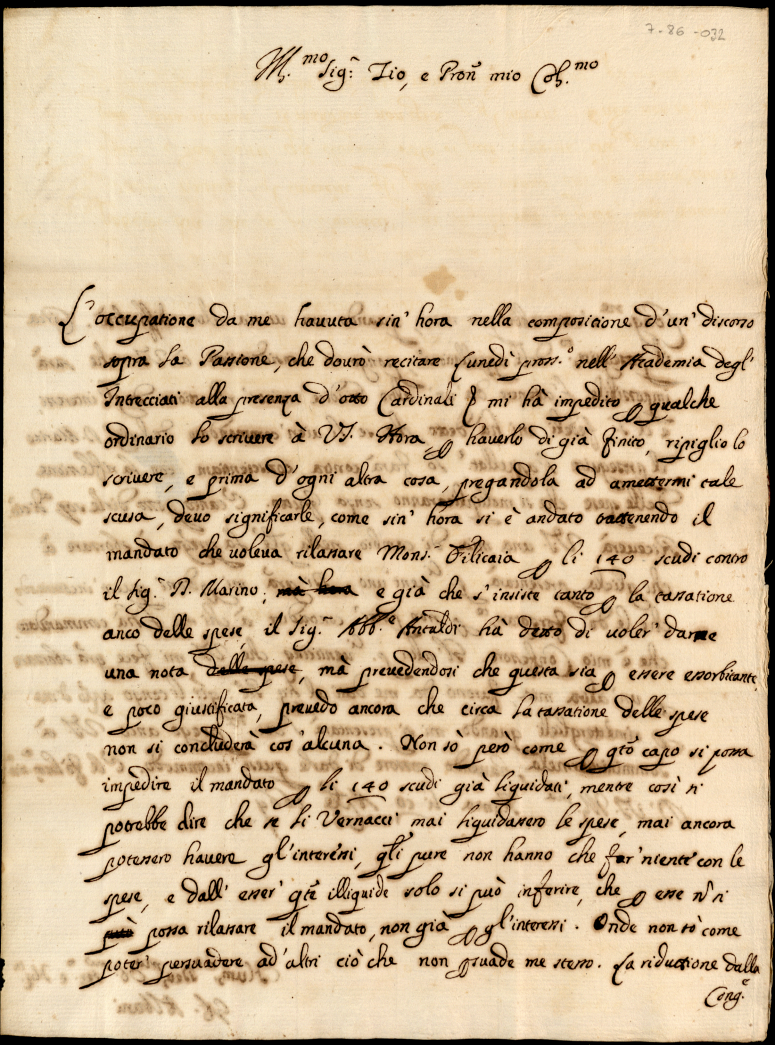 7-86-032
Ill.mo Sig.r Zio, e Pron mio Col.mo
L'occupatione da me havuta sin' hora nella compositione d'un' discorso
sopra la Passione, che dovrò recitare Lunedì pross.o nell' Academia degl'
Intrecciati alla presenza d'otto Cardinali mi hà impedito p qualche
ordinario lo scrivere à VS. Hora p haverlo di già finito, ripiglio lo
scrivere, e prima d'ogni altra cosa, pregandola ad amettermi tale
scusa, devo significarle, come sin' hora si è andato trattenendo il
mandato che voleva rilassare Mons.r Filicaia p li 140 scudi contro
il Sig.r D. Marino; mà hora e già che s'insiste tanto p la tassatione
anco delle spese, il Sig.r Abb.e Antaldi hà detto di voler' darne
una nota delle spese, mà prevedendosi che questa sia p essere essorbitante,
e poco giustificata, prevedo ancora che circa la tassatione delle spese
non si concluderà cos' alcuna. Non sò però come p qto capo si possa
impedire il mandato p li 140 scudi già liquidati, mentre così si
potrebbe dire che se li Vernacci mai liquidassero le spese, mai ancora
potessero havere gl'interessi, qli pure non hanno che far' niente con le
spese, e dall' esser' qte illiquide solo si può inferire, che p esse nō si
può possa rilassare il mandato, non già p gl'interessi. Onde non sò come
poter' persuadere ad' altri ciò che non psuade me stesso. La riduttione dalla
Cong.e